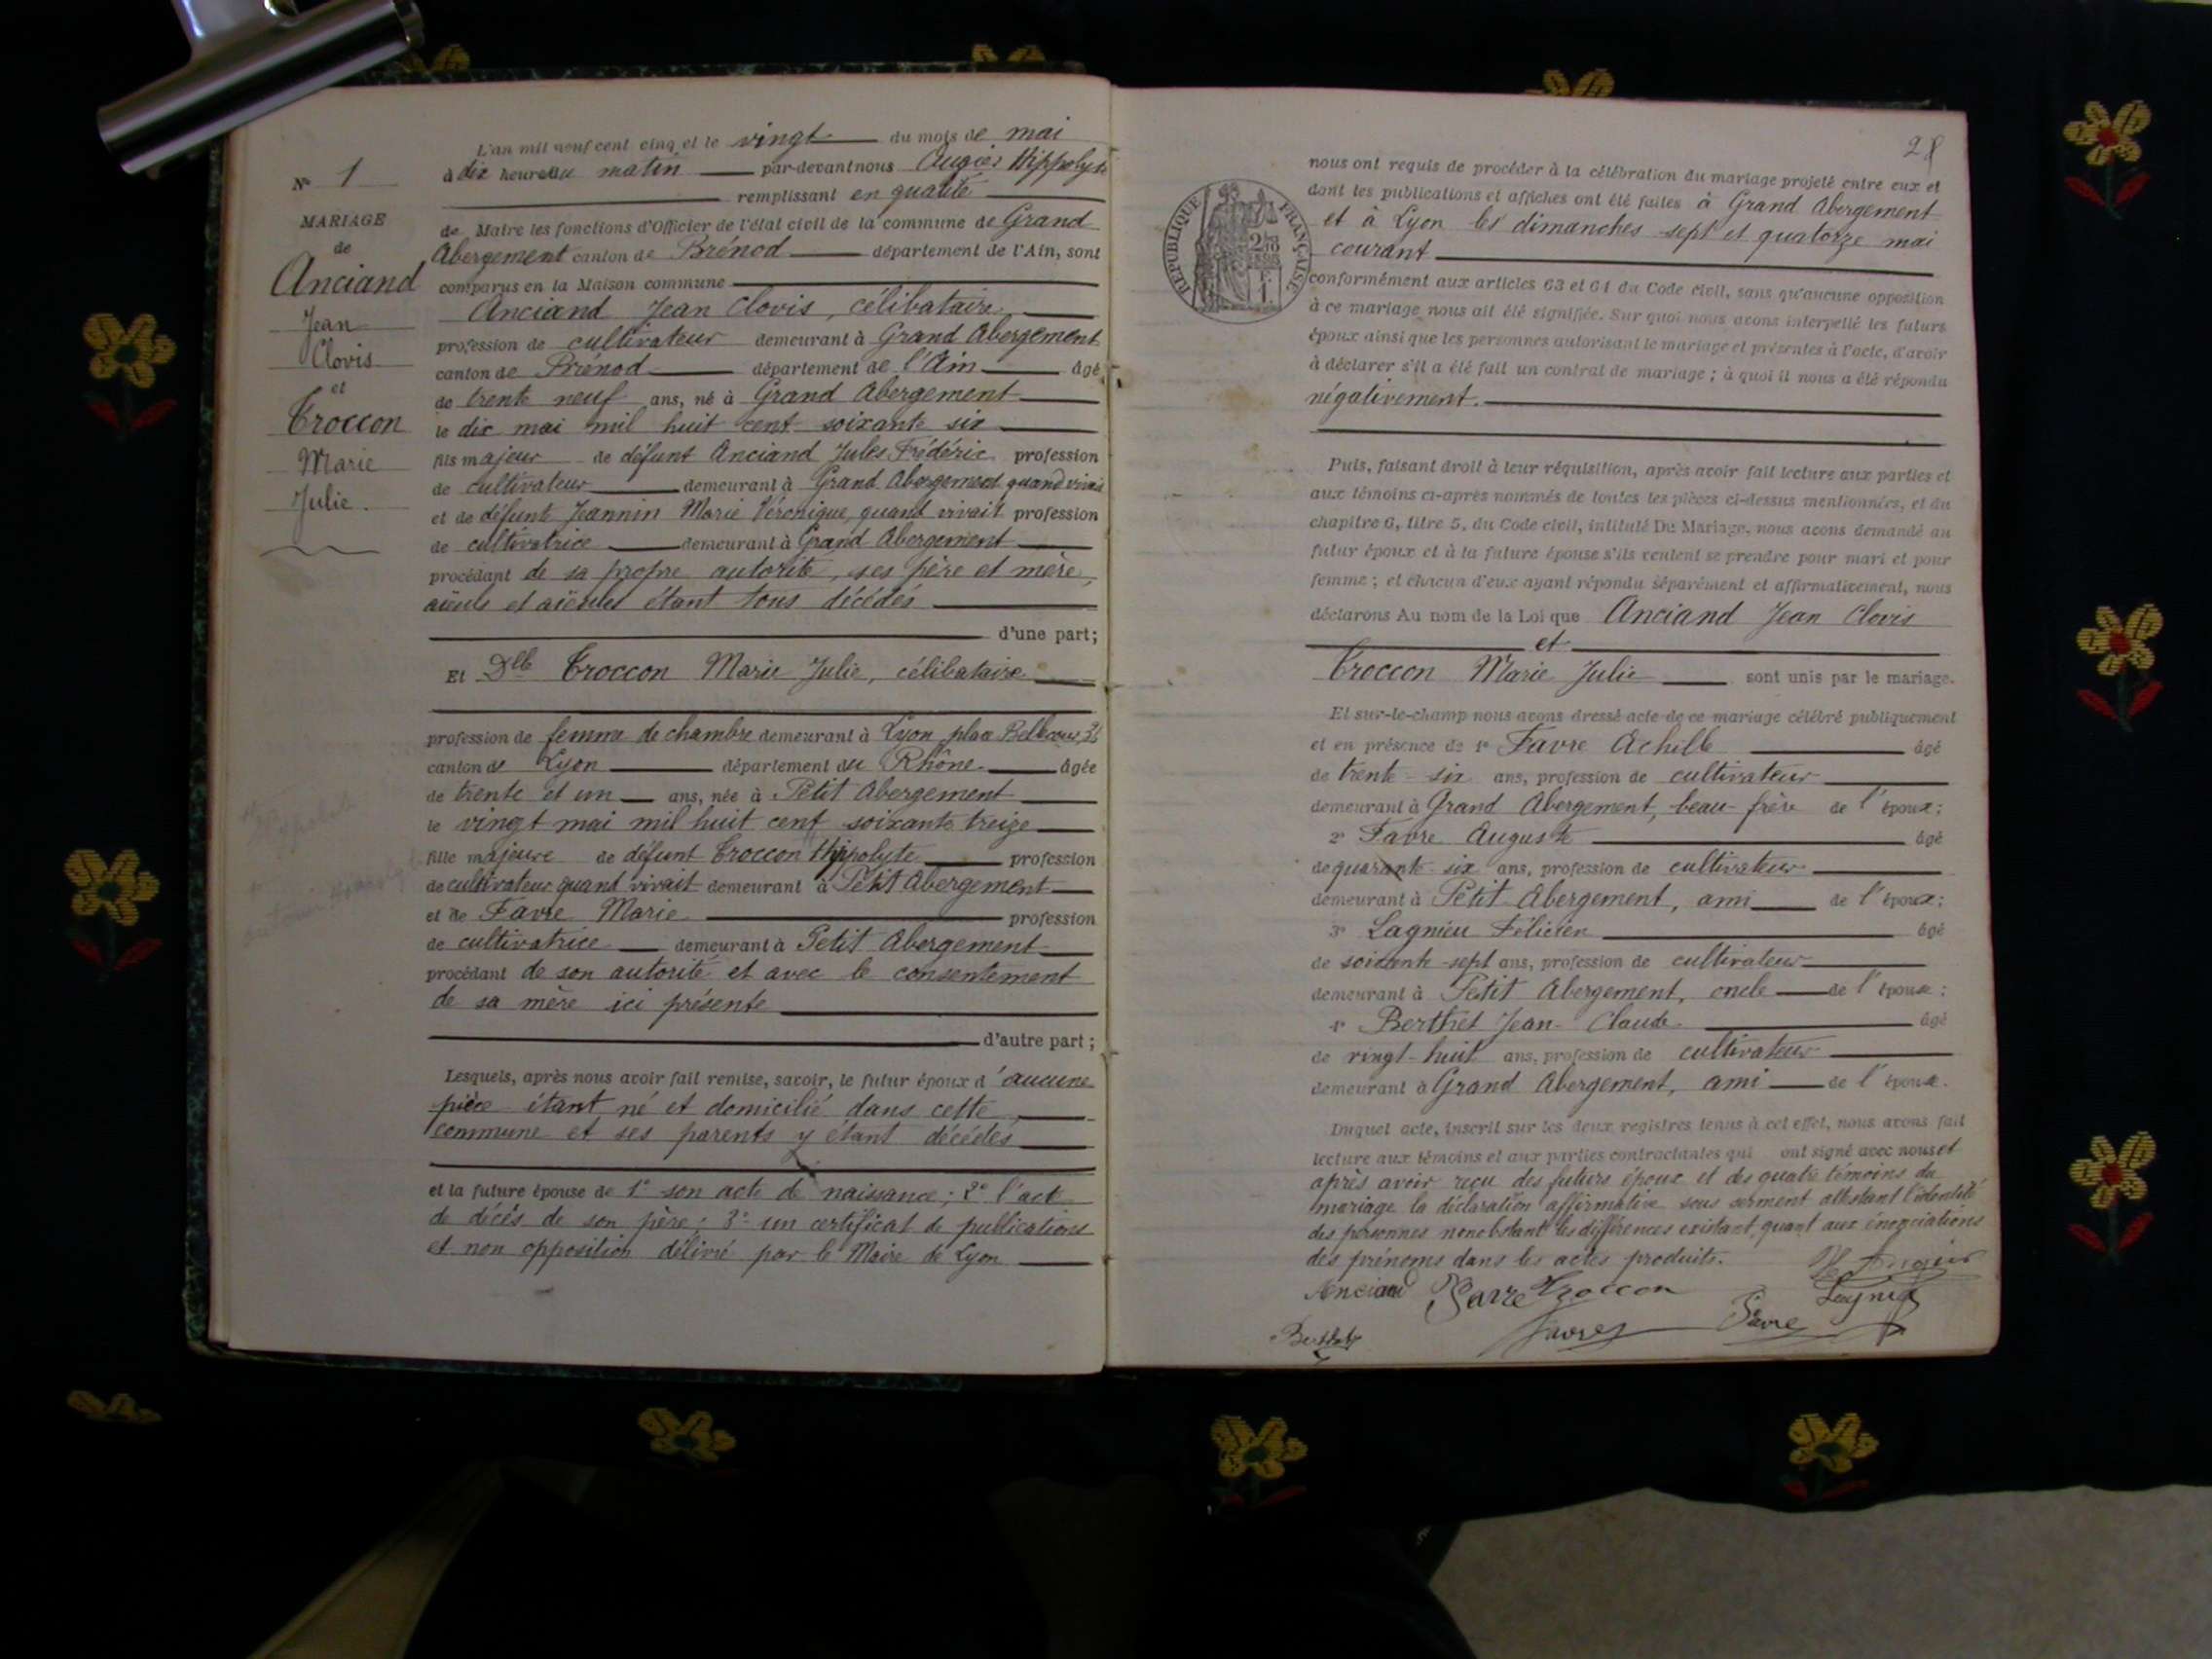 L'an mil neuf cent cinq et le vingt du mois de mai
N° 1
à dix heures du matin par-devant nous Augier Hippolyte
remplissant en qualité
MARIAGE
de
Anciand
Jean
Clovis
et
Troccon
Marie
Julie.
de Maire les fonctions d'Officier de l'état civil de la commune de Grand
Abergement canton de Brénod département de l'Ain, sont
comparus en la Maison commune
Anciand Jean Clovis, célibataire
profession de cultivateur demeurant à Grand Abergement
canton de Brénod département de l'Ain âgé
de trente neuf ans, né à Grand Abergement
le dix mai mil huit cent soixante six
fils majeur de défunt Anciand Jules Frédéric profession
de cultivateur demeurant à Grand Abergement quand vivait
et de défunte Jeannin Marie Véronique, quand vivait profession
de cultivatrice demeurant à Grand Abergement
procédant de sa propre autorité, ses père et mère,
aïeuls et aïeules étant tous décédés
d'une part;
Et Dlle Troccon Marie Julie, célibataire
profession de femme de chambre demeurant à Lyon place Bellecour
canton de Lyon département du Rhône âgée
de trente et un ans, née à Petit Abergement
le vingt mai mil huit cent soixante treize
fille majeure de défunt Troccon Hippolyte profession
de cultivateur quand vivait demeurant à Petit Abergement
et de Favre Marie profession
de cultivatrice demeurant à Petit Abergement
procédant de son autorité et avec le consentement
de sa mère ici présente
d'autre part;
Lesquels, après nous avoir fait remise, savoir, le futur époux d'aucune
pièce étant né et domicilié dans cette
commune et ses parents y étant décédés
et la future épouse de 1° son acte de naissance; 2° l'acte
de décès de son père; 3° un certificat de publications
et non opposition délivré par le Maire de Lyon
28
nous ont requis de procéder à la célébration du mariage projeté entre eux et
dont les publications et affiches ont été faites à Grand Abergement
et à Lyon les dimanches sept et quatorze mai
courant
RÉPUBLIQUE FRANÇAISE
conformément aux articles 63 et 64 du Code civil, sans qu'aucune opposition
à ce mariage nous ait été signifiée. Sur quoi nous avons interpellé les futurs
époux ainsi que les personnes autorisant le mariage et présentes à l'acte, d'avoir
à déclarer s'il a été fait un contrat de mariage; à quoi il nous a été répondu
négativement.
Puis, faisant droit à leur réquisition, après avoir fait lecture aux parties et
aux témoins ci-après nommés de toutes les pièces ci-dessus mentionnées, et du
chapitre 6, titre 5, du Code civil, intitulé Du Mariage, nous avons demandé au
futur époux et à la future épouse s'ils veulent se prendre pour mari et pour
femme; et chacun d'eux ayant répondu séparément et affirmativement, nous
déclarons Au nom de la Loi que Anciand Jean Clovis
et
Troccon Marie Julie sont unis par le mariage.
Et sur-le-champ nous avons dressé acte de ce mariage célébré publiquement
et en présence de 1° Favre Achille âgé
de trente-six ans, profession de cultivateur
demeurant à Grand Abergement, beau-frère de l'époux;
2° Favre Auguste âgé
de quarante-six ans, profession de cultivateur
demeurant à Petit Abergement, ami de l'époux;
3° Lagnieu Félicien âgé
de soixante-sept ans, profession de cultivateur
demeurant à Petit Abergement, oncle de l'épouse;
4° Berthet Jean-Claude âgé
de vingt-huit ans, profession de cultivateur
demeurant à Grand Abergement, ami de l'épouse.
Duquel acte, inscrit sur les deux registres tenus à cet effet, nous avons fait
lecture aux témoins et aux parties contractantes qui ont signé avec nous et
après avoir reçu des futurs époux et des quatre témoins du
mariage la déclaration affirmative sous serment attestant l'identité
des personnes nonobstant les différences existant quant aux énonciations
des prénoms dans les actes produits.
Anciand Favre Troccon
Favre Favre